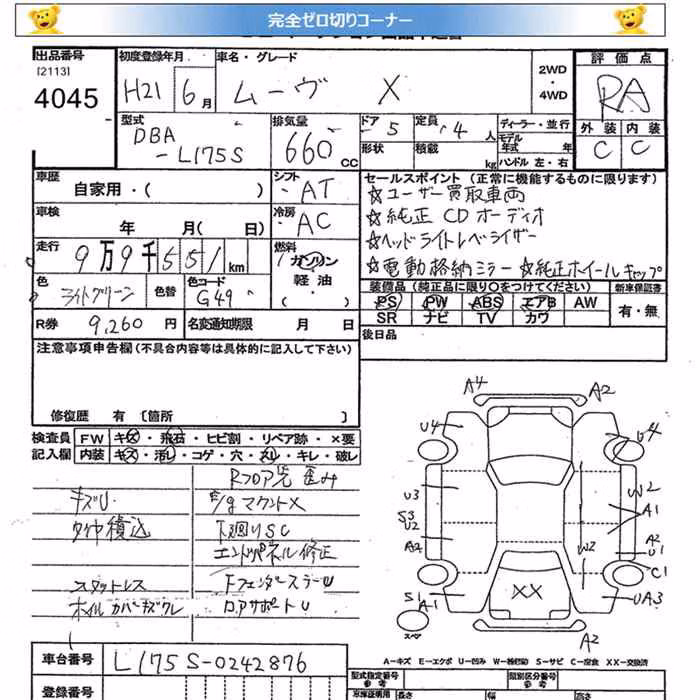 完全ゼロ切りコーナー
出品番号
[2113]
4045
初度登録年月
H21 6月
車名・グレード
ムーヴ X
2WD
・
4WD
評価点
RA
外装 内装
C C
型式
DBA
-L175S
排気量
660 cc
ドア 5
定員 4 人
形状
積載 kg
ディーラー・並行
モデル
年式 年
ハンドル 左・右
車歴
自家用・( )
シフト
AT
車検
年 月( 日)
冷房
AC
走行
9万9千551km
燃料
ガソリン
軽油
色
ライトグリーン
色替
色コード
G49
R券 9,260 円
名変通知期限 月 日
セールスポイント (正常に機能するものに限ります)
☆ユーザー買取車両
☆純正CDオーディオ
☆ヘッドライトレベライザー
☆電動格納ミラー ☆純正ホイールキャップ
装備品 (純正品に限り○をつけてください)
新車保証書
PS PW ABS エアB AW
SR ナビ TV カワ
有・無
後日品
注意事項申告欄 (不具合内容等は具体的に記入して下さい)
修復歴 有 [箇所 ]
検査員
記入欄
FW キズ・飛石・ヒビ割・リペア跡・×要
内装 キズ・汚レ・コゲ・穴・スレ・キレ・破レ
Rフロア先 歪み
キズU
E/gマウントX
タイヤ積込
下廻りSC
エンドパネル修正
スタットレス
FフェンダーステーU
ホイルカバーキズワレ
ロアサポートU
A4 A2
U4 U4
U3 W2
S3
U2
A1
A2 W2 A2
U1
C1
S1
A1
XX
UA3
スペア
A2
A-キズ E-エクボ U-凹み W-補修跡 S-サビ C-腐食 XX-交換済
車台番号
L175S-0242876
登録番号
型式指定番号
類別区分番号
長さ 幅 高さ